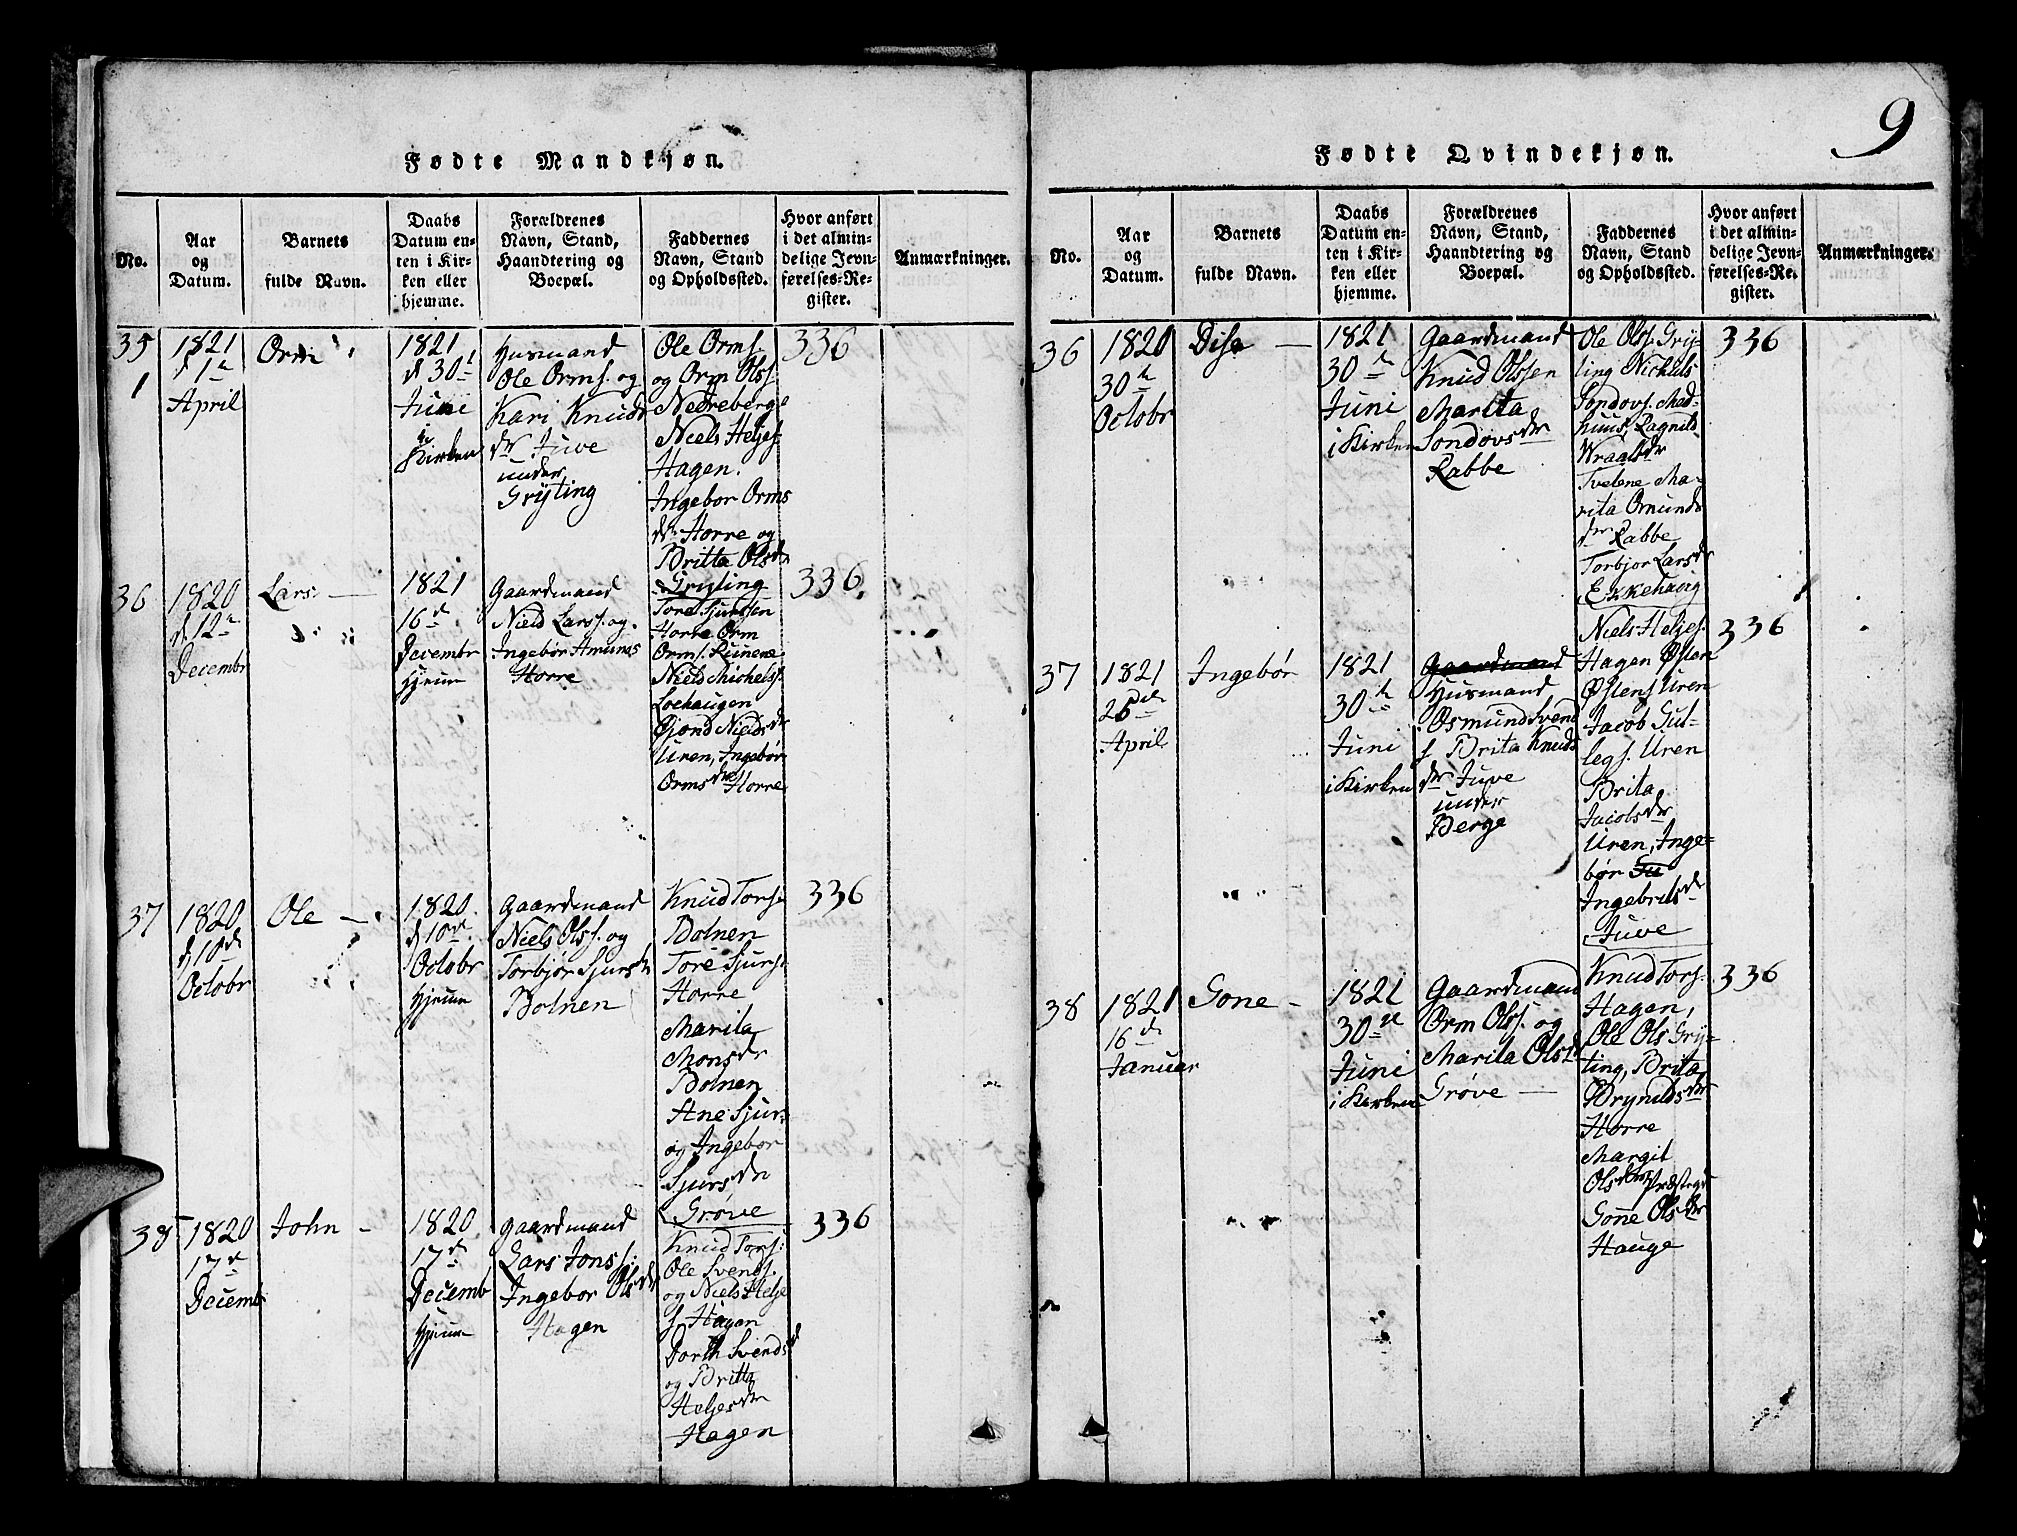 9
Fødte Mandkjøn.
No.
Aar
og
Datum.
Barnets
fulde Navn.
Daabs
Datum en-
ten i Kir-
ken eller
hjemme.
Forældrenes
Navn, Stand,
Haandtering og
Boepæl.
Faddernes
Navn, Stand
og Opholdssted.
Hvor anført
i det almin-
delige Jevn-
førelses-Re-
gister.
Anmærkninger.
35
1821
d 1ste
April
Orm
1821
d 30te
Juni
i
Kirken
Husmand
Ole Orms. og
Kari Knuds
dr Juve
under
Gryting
Ole Orms.
og Orm Ols.
Nedreberge
Niels Heljes.
Hagen.
Ingebor Orms
dr Horre og
Britta Olsdr
Gryting
336
36
1820
d 12te
Decembr
Lars
1821
16d
Decembr
hjemme
Gaardmand
Nield Larss. og
Ingebør Amunds
Horre
Tore Sjurssen
Horre Orm
Orms.
Nield Michels.
Loehaugen
Gjond Nieldsdr
Uren, Ingebør
Ormsdr Horre
336
37
1820
d 10de
Octobr
Ole
1820
d 10de
Octobr
hjemme
Gaardmand
Niels Olss. og
Torbjør Sjursdr
Bolnen
Knud Tors.
Bolnen
Tore Sjurs.
Horre
Marita
Monsdr
Bolnen
Ane Sjurs
og Ingebor
Sjursdr
Grøve
336
38
1820
17de
Decembr
John
1820
17d
Decembr
hjemme
Gaardmand
Lars Jons s.
Ingebor Olsdr
Hagen
Knud Tors.
Ole Svends.
og Niels Helje
s. Hagen
Dorth Svendsd
og Britta
Heljesdr
Hagen
336
Fødte Qvindekjøn.
No.
Aar
og
Datum.
Barnets
fulde Navn.
Daabs
Datum en-
ten i Kir-
ken eller
hjemme.
Forældrenes
Navn, Stand,
Haandtering og
Boepæl.
Faddernes
Navn, Stand
og Opholdssted.
Hvor anført
i det almin-
delige Jevn-
førelses-Re-
gister.
Anmærkninger.
36
1820
30te
Octobr
Dise
1821
30te
Juni
i Kirken
Gaardmand
Knud Olssen
Marita
Sondovsdr
Rabbe
Ole Olss. Gry-
ting Nichels
Sondovs. Mad-
huus, Ragnild
Wraalsdr
Tvetene Ma-
rita Omunds
dr Rabbe
Torbjor Larsdr
Ekkehaug
336
37
1821
25de
April
Ingebør
1821
30te
Juni
i Kirken
Gaardmand
Husmand
Osmund Svend
s. Brita Knuds
dr Juve
under
Berge
Niels Heljes.
Hagen Østen
Østens. Uren
Jacob Gut-
legs. Uren
Brita
Jacobsdr
Uren, Inge-
bør
Ingebrilsdr
Juve
336
38
1821
16de
Januar
Gone
1821
30te
Juni
i Kirken
Gaardmand
Orm Olss. og
Marita Olsdr
Grøve
Knud Tors.
Hagen,
Ole Ols Gry-
ting, Brita
Brynildsdr
Horre
Margit
Olsdr Præsteg.
Gone Olsdr
Hauge
336